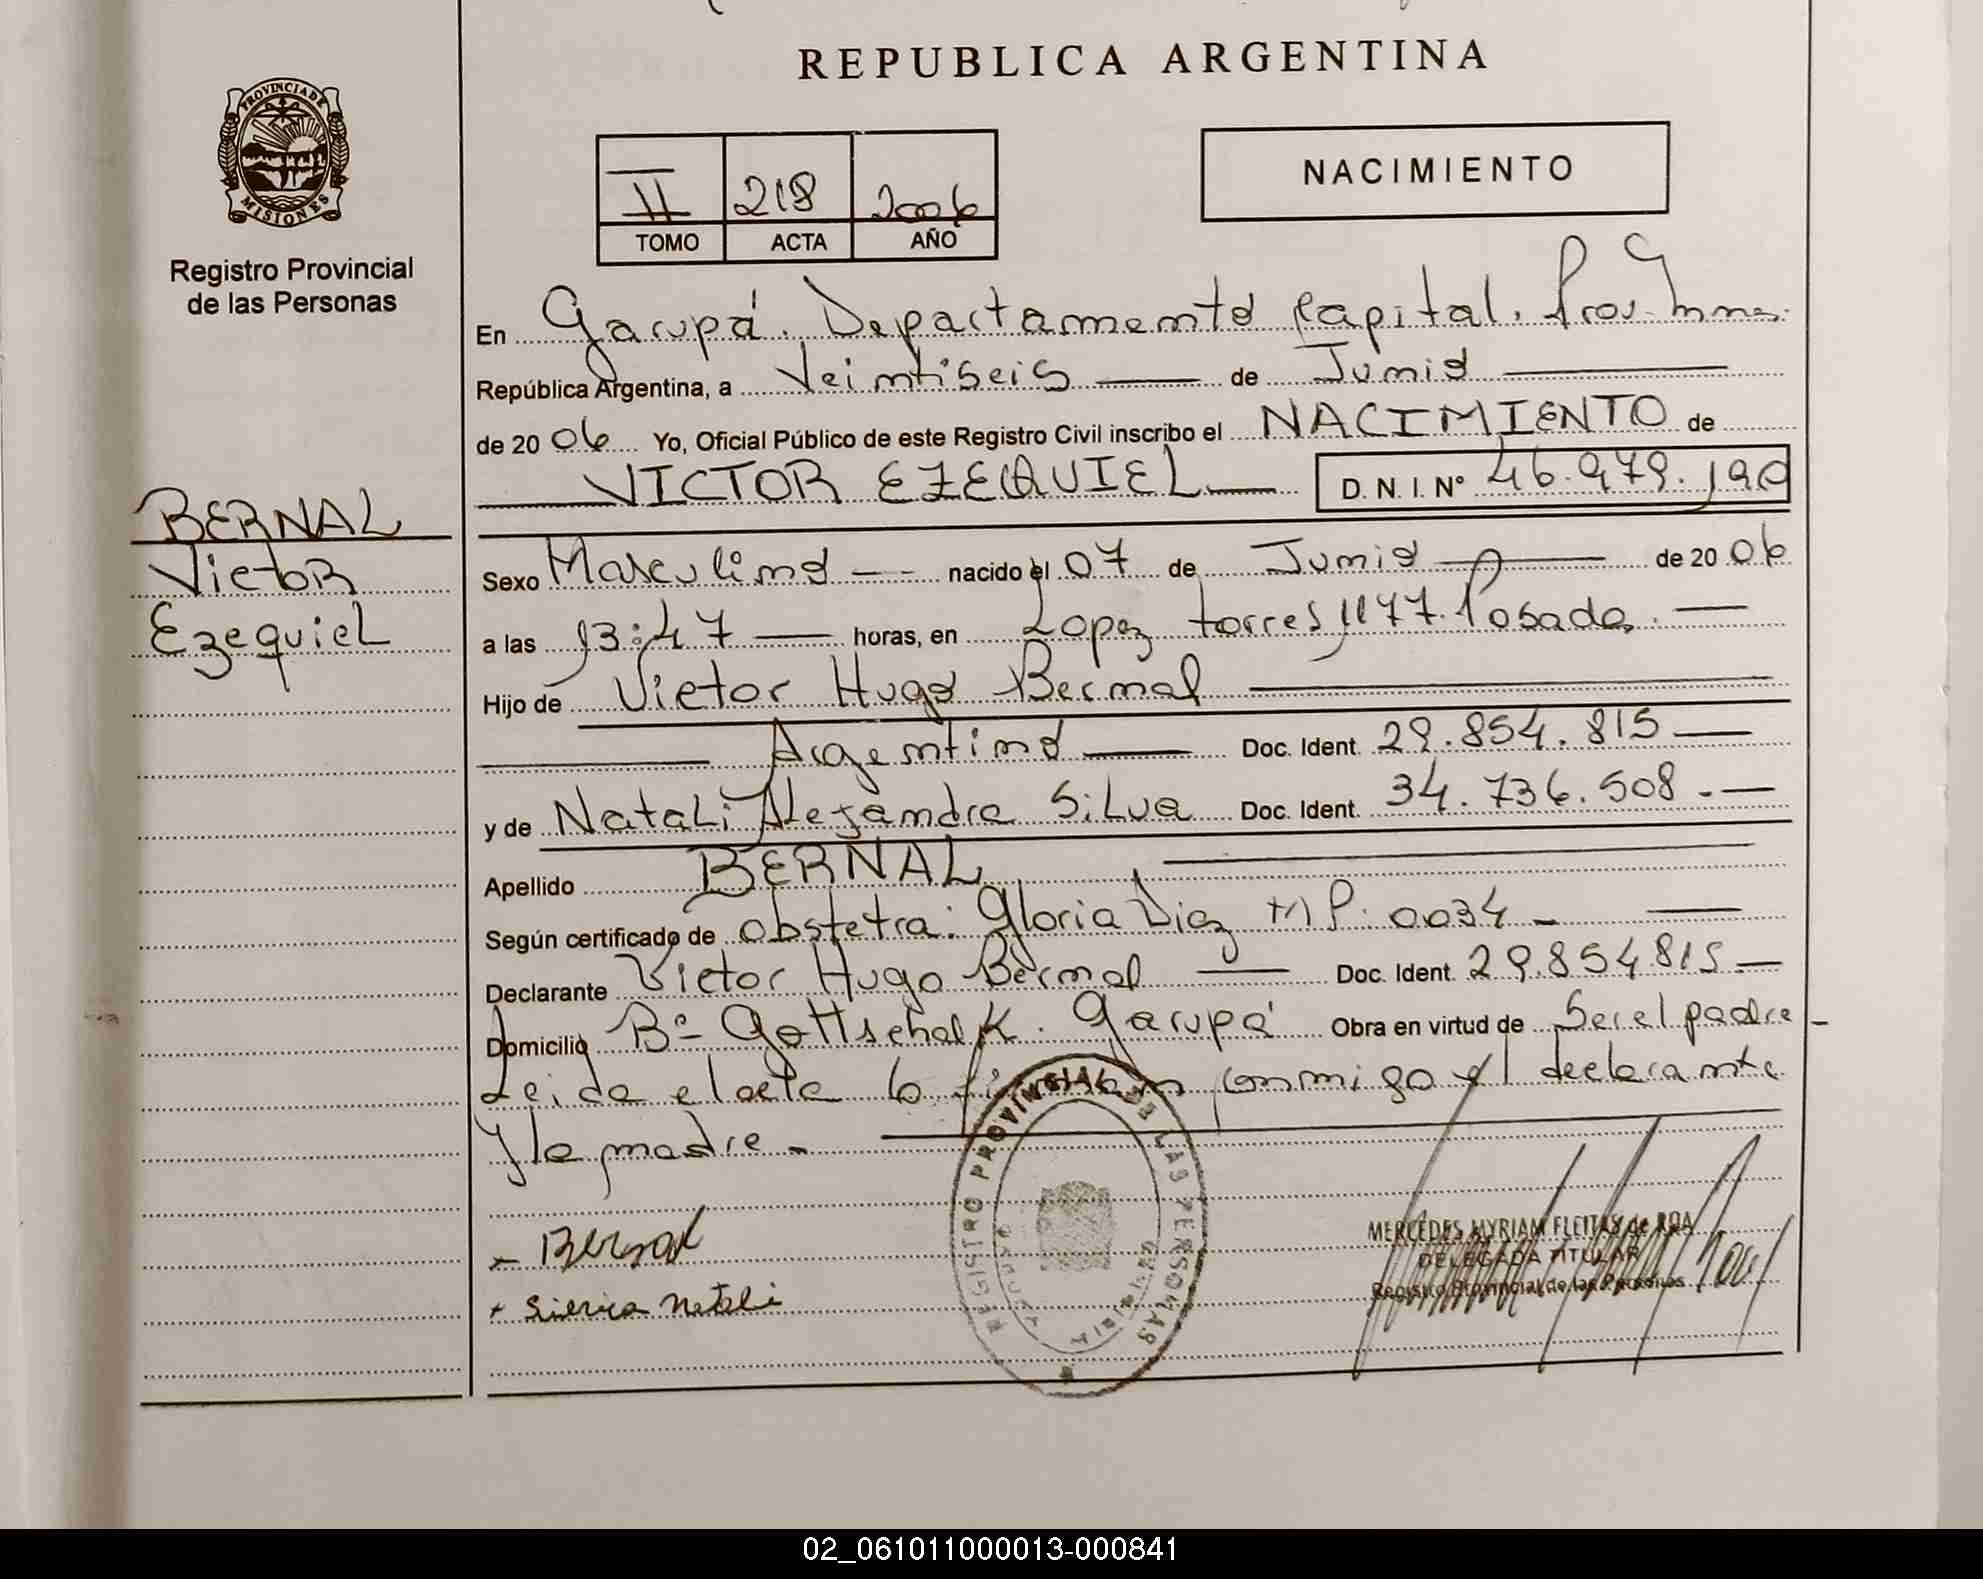 REPUBLICA ARGENTINA
PROVINCIA DE MISIONES
Registro Provincial
de las Personas
II 218 2006
TOMO ACTA AÑO
NACIMIENTO
En Garupá. Departamento Capital. Prov. Mnes.
República Argentina, a Veintiseis de Junio
de 20 06 Yo, Oficial Público de este Registro Civil inscribo el NACIMIENTO de
VICTOR EZEQUIEL D.N.I. Nº 46.979.190
BERNAL
Victor
Ezequiel
Sexo Masculino nacido el 07 de Junio de 20 06
a las 13:47 horas, en Lopez torres 1177. Posadas.
Hijo de Victor Hugo Bernal
Argentino Doc. Ident. 29.854.815
y de Natali Alejandra Silva Doc. Ident. 34.736.508.-
Apellido BERNAL
Según certificado de obstetra: Gloria Diaz MP: 0034 -
Declarante Victor Hugo Bernal Doc. Ident. 29.854.815
Domicilio Bº Gottschalk. Garupá Obra en virtud de Ser el padre -
Leida el acta la firman conmigo el declarante
y la madre.-
Bernal
Natali
REGISTRO PROVINCIAL DE LAS PERSONAS
MERCEDES MYRIAM FLEITAS de ROA
DELEGADA TITULAR
Registro Provincial de las Personas
02_061011000013-000841